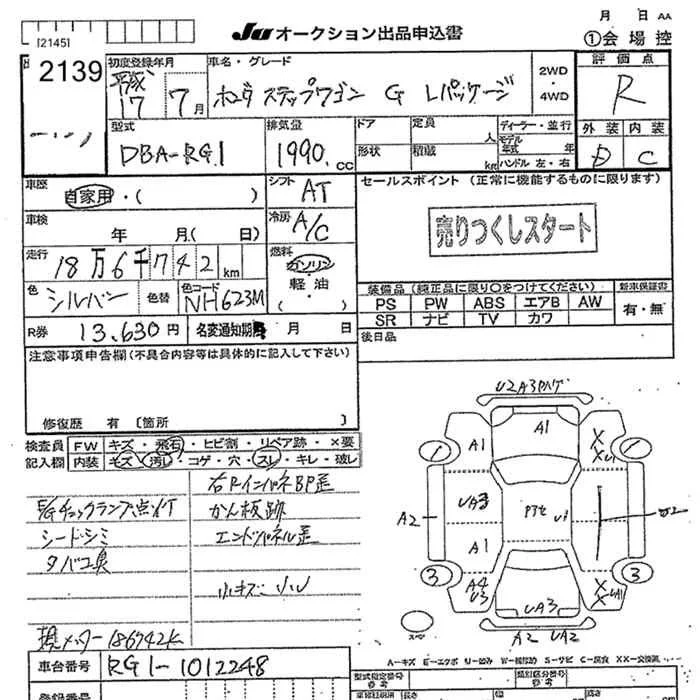 月 日 AA
[2145]
JU オークション出品申込書
①会場控
2139
初度登録年月
平成
17 7月
車名・グレード
ホンダ ステップワゴン G Lパッケージ
2WD
・
4WD
評価点
R
外装 内装
D C
型式
DBA-RG1
排気量
1990 CC
ドア
定員
人
形状
積載
kg
ディーラー・並行
モデル年式 年
ハンドル 左・右
車歴
自家用・( )
シフト
AT
セールスポイント (正常に機能するものに限ります)
売りつくしスタート
車検
年 月( 日)
冷房
A/C
走行
18万6千742km
燃料
ガソリン
軽油
( ・ )
色
シルバー
色替
色コード
NH623M
装備品(純正品に限り○をつけてください)
新車保証書
PS PW ABS エアB AW
有・無
SR ナビ TV カワ
R券
13,630円
名変通知期限 月 日
後日品
注意事項申告欄(不具合内容等は具体的に記入して下さい)
修復歴 有 〔箇所 〕
検査員
記入欄
FW キズ・飛石・ヒビ割・リペア跡・×要
内装 キズ・汚レ・コゲ・穴・スレ・キレ・破レ
右Fインパネ BP歪
E/Gチェックランプ点灯
かん板跡
シートシミ
エンドパネル歪
タバコ臭
小キズ・小U
現メーター 186742K
車台番号
RG1-1012248
登録番号
U2A3ハゲ
A1
A1
X
XU1
1
1
A2
UA3
U1
U2
A1
3
3
A4
U3
X
XU1
UA3
A2 UA2
A-キズ E-エクボ U-凹み W-補修跡 S-サビ C-腐食 XX-交換済
型式指定番号
参考
類別区分番号
参考
長さ